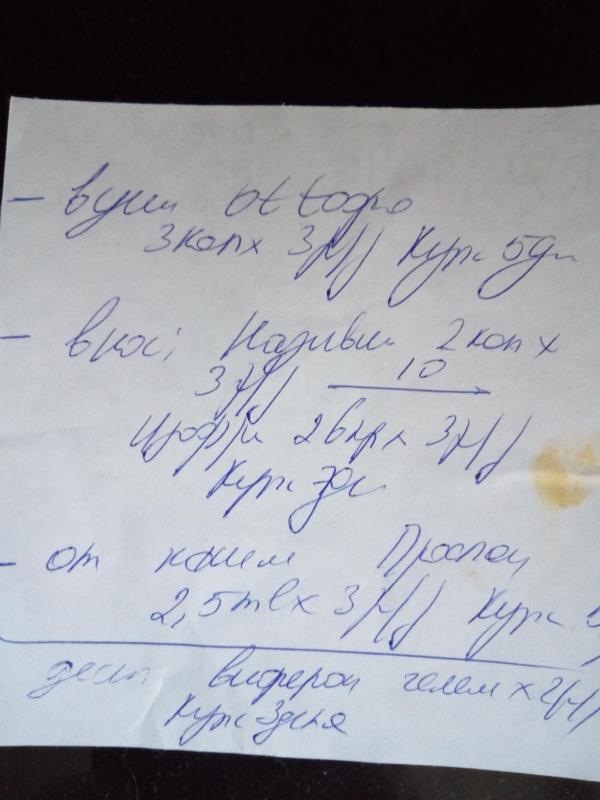 - в уши
3 кап х 3 р/д Курс 5 дн
- в нос: Називин 2 кап х
3 р/д 10
2 впр х 3 р/д
Курс 7 дн
- от кашля Проспан
2,5 ml х 3 р/д Курс
десн вифероном гелем х 2 р/д
Курс 3 дня